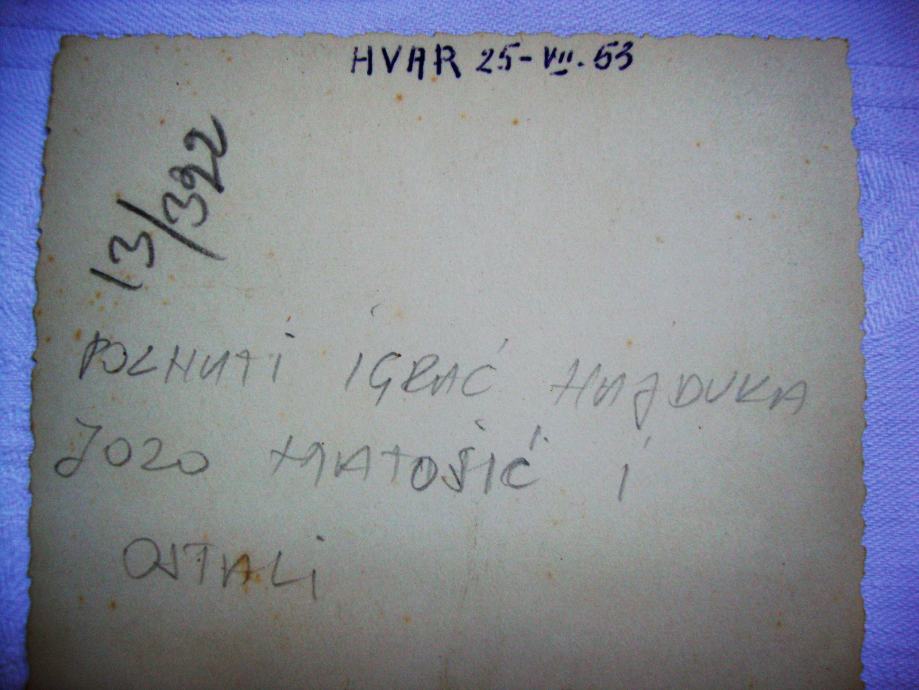 HVAR 25-VII.53
13/392
POZNATI IGRAĆ HAJDUKA
JOZO MATOŠIĆ I
OSTALI